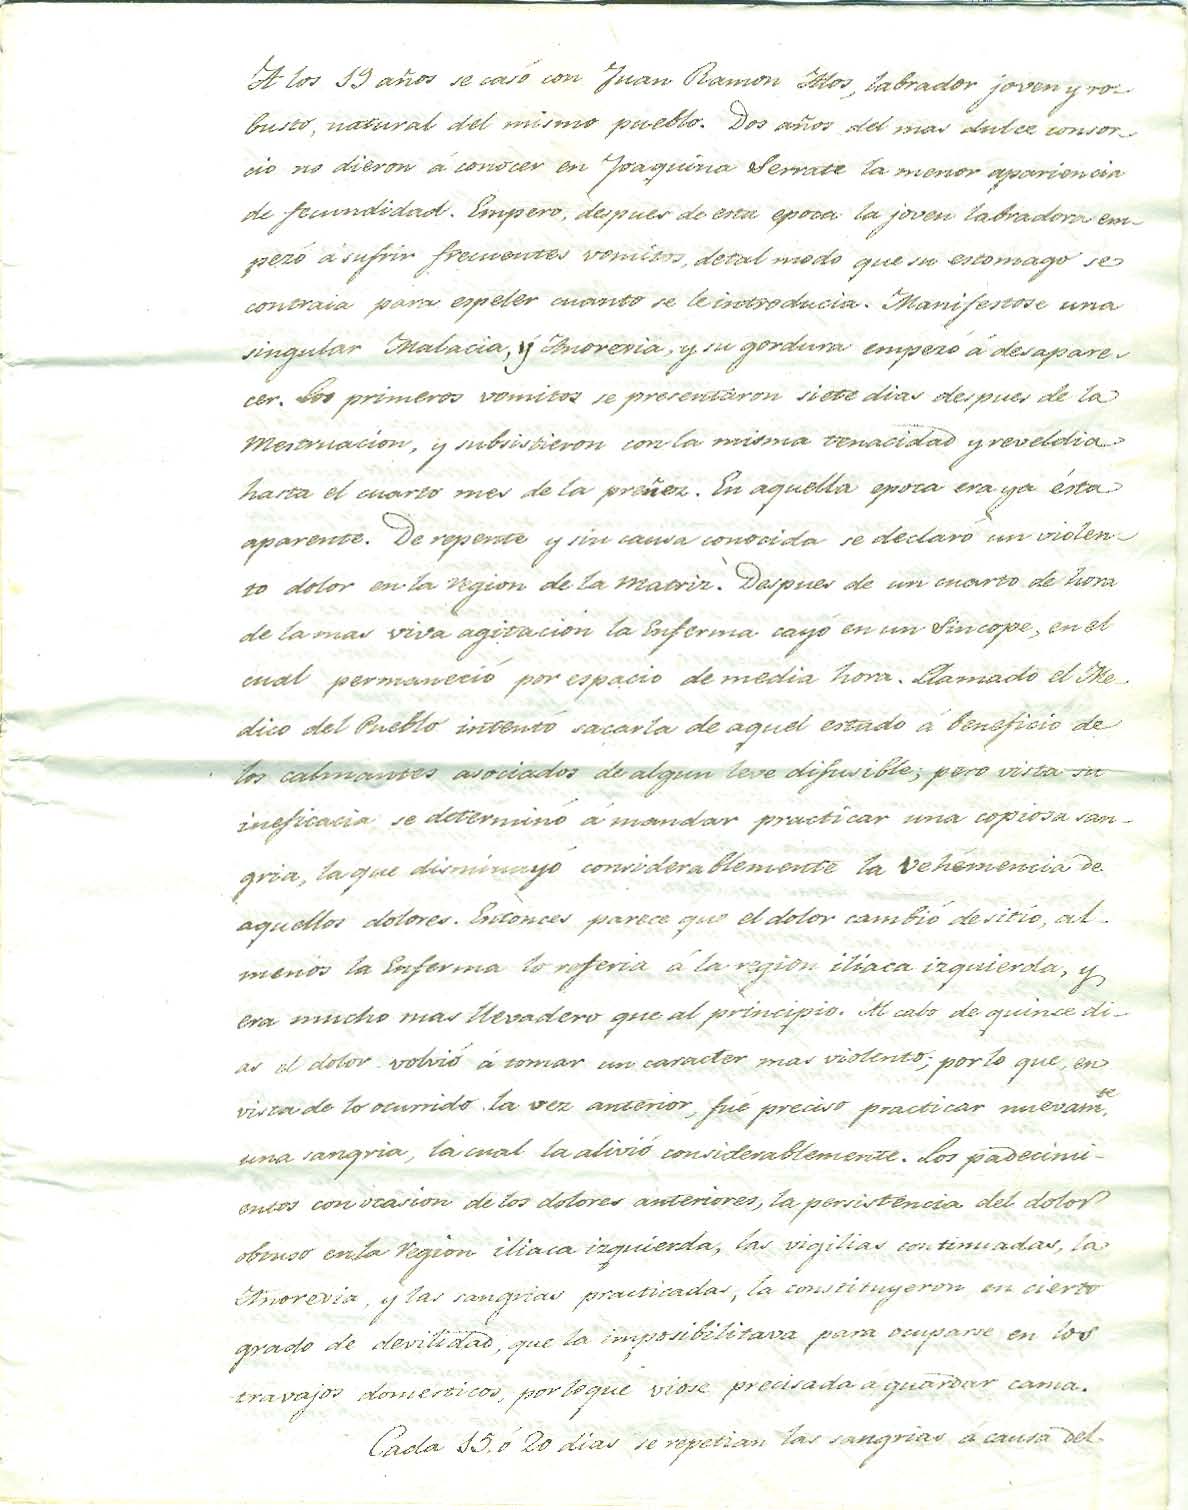 A los 19 años se casó con Juan Ramon Mos, labrador joven y ro-
busto, natural del mismo pueblo. Dos años del mas dulce consor-
cio no dieron á conocer en Joaquina Serrate la menor apariencia
de fecundidad. Empero, despues de esta epoca la joven labradora em-
pezó á sufrir frecuentes vomitos, de tal modo que su estomago se
contraia para espeler cuanto se le introducia. Manifestose una
singular Malacia, y Anorexia, y su gordura empezó á desapare-
cer. Los primeros vomitos se presentaron siete dias despues de la
Mestruacion, y subsistieron con la misma tenacidad y reveldia
hasta el cuarto mes de la preñez. En aquella epoca era ya ésta
aparente. De repente y sin causa conocida se declaró un violen-
to dolor en la region de la Matriz. Despues de un cuarto de hora
de la mas viva agitacion la Enferma cayó en un Sincope, en el
cual permaneció por espacio de media hora. Llamado el Me-
dico del Pueblo intentó sacarla de aquel estado á beneficio de
los calmantes asociados de algun leve difusible; pero vista su
ineficacia se determinó á mandar practicar una copiosa san-
gria, la que disminuyó considerablemente la vehemencia de
aquellos dolores. Entonces parece que el dolor cambió de sitio, al
menos la Enferma lo referia á la region iliaca izquierda, y
era mucho mas llevadero que al principio. Al cabo de quince di-
as el dolor volvió á tomar un caracter mas violento; por lo que, en
vista de lo ocurrido la vez anterior, fué preciso practicar nuevamte.
una sangria, la cual la alivió considerablemente. Los padecimi-
entos con ocasion de los dolores anteriores, la persistencia del dolor
obtuso en la Region iliaca izquierda, las vigilias continuadas, la
Anorexia, y las sangrias practicadas, la constituyeron en cierto
grado de devilidad, que la imposibilitava para ocuparse en los
travajos domesticos, por lo que viose precisada a guardar cama.
Cada 15 ó 20 dias se repetian las sangrias á causa del